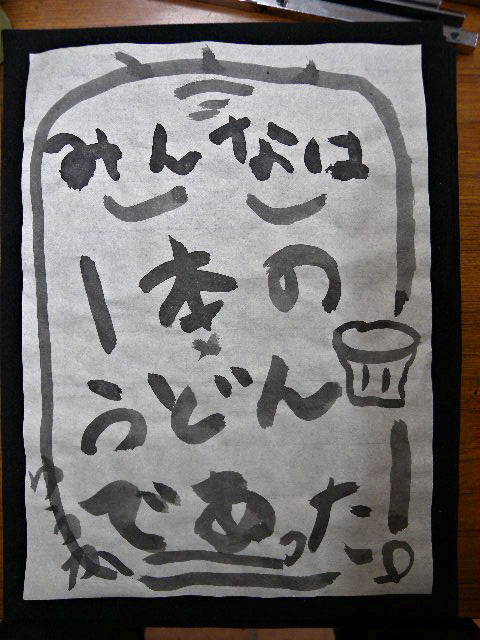 みんなは
一本の
うどん
であった!